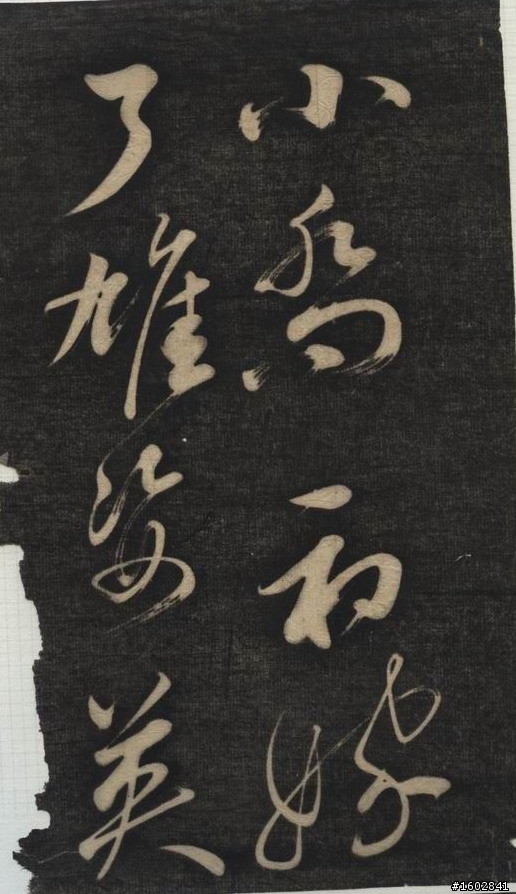 小喬初嫁
了雄姿英
#1602841